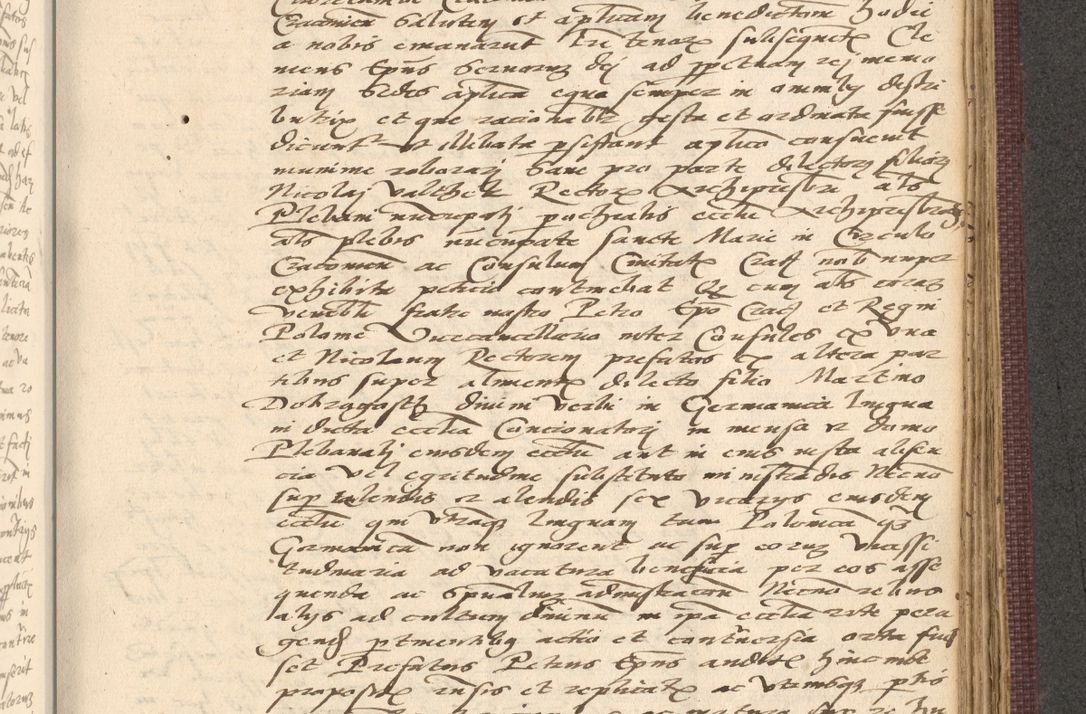 Cracovien Salutem et aplicam benedictionem hodie
a nobis emanarunt Lre tenore subsequeti Cle
mens Epus Servorum dej ad ppetuam rej memo
riam Sedes aplica equa semper in omnibus distri
butrix et que rationabili gesta et ordinata fuisse
dicunt ut illibata psistant aplico consuevit
munime roborarj Sane pro parte dilectorum filiorum
Nicolaj Rectoris Archipresbri als
Plebani nuncupatj pochialis ecclie Archipresbiteralis
als plebis nucupate sancte Marie in Circulo
Cracovien ac Consulum Civitatis Crac nob nuper
exhibita peticio continebat Qd cum als coram
venebli fratre nostro Petro Epo Crac et Regni
Polonie Vicecancellario inter Consules ex una
et Nicolaum Rectorem prefatos ex altera par
tibus super alimentis dilecto filio Martino
Dobragosth divini verbi in Germanica lingua
in dicta ecclia Concionatorj in mensa et domo
Plebanalj eiusdem ecclie aut in eius absen
cia vel egritudine substituto ministrandis Necno
sup et alendis sex vicarijs eiusdem
ecclie qui utramq linguam tam Polonica q
Germanica non ignorent ac sup eorum vicissi
tudinaria ad vacatura beneficia per eos asse
quenda ac spualium administracon Necno rebus
alijs ad cultum divinu in ipa ecclia rite pera
gend ptinentibus actio et contversia orta fuis
set Prefatus Petrus Epus auditis hincinde
propositis et replicatis ac utriusq ptis